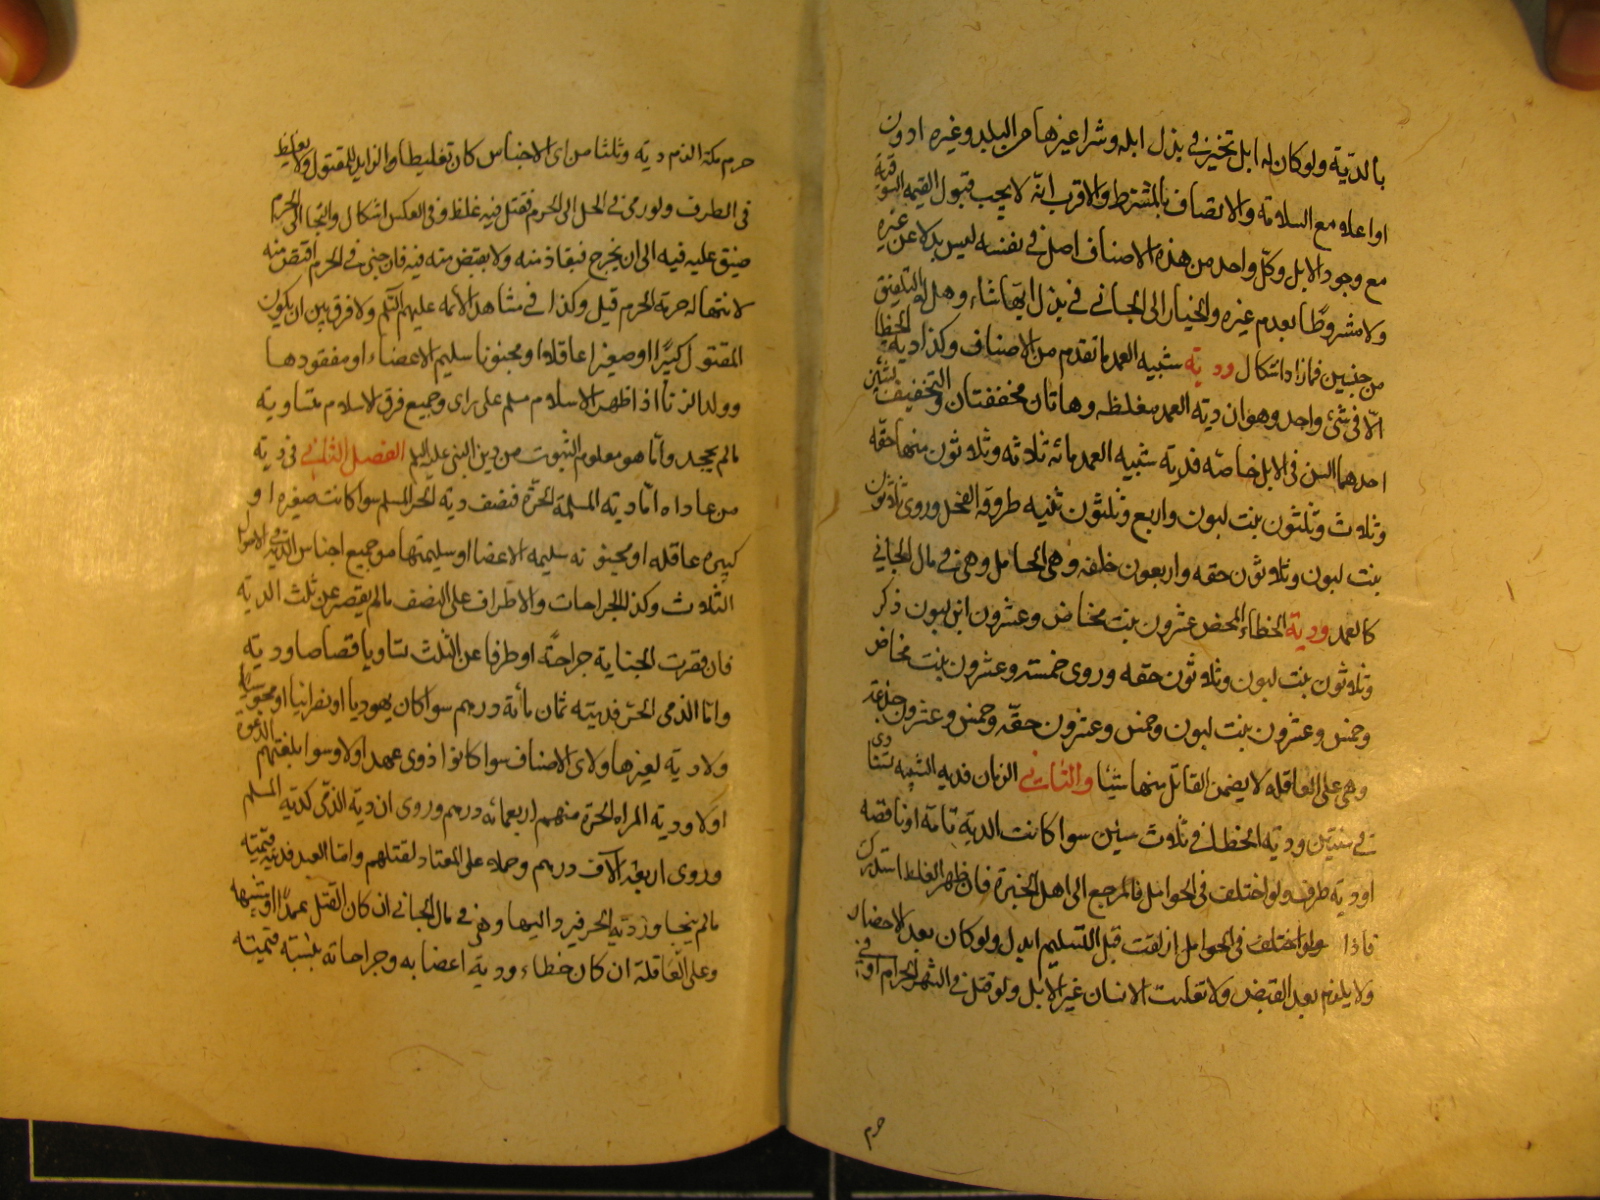 بالدية ولو كان له ابل تخير في بذل ابله وشرا غيرها من البلد وغيره ادون
او اعلا مع السلامة والاتصاف بالمشترط والاقرب انه لا يجب قبول القيمة السوقية
مع وجود الابل وكل واحد من هذه الاصناف اصل في نفسه ليس بدلا عن غيره
ولا مشروطا بعدم غيره والخيار الى الجاني في بذل ايها شاء وهل له التلفيق
من جنسين فما زاد اشكال ودية شبيه العمد ما تقدم من الاصناف وكذا دية الخطا
الا في شئ واحد وهو ان دية العمد مغلظه وهاتان مخففتان والتخفيف بشيئين
احدهما السن في الابل خاصه فدية شبيه العمد مائه ثلاثه وثلاثون منها حقه
وثلاث وثلثون بنت لبون واربع وثلثون ثنيه طروقه الفحل وروى ثلاثون
بنت لبون وثلاثون حقه واربعون خلفه وهي الحامل وهي في مال الجاني
كالعمد ودية الخطاء المحض عشرون بنت مخاض وعشرون ابن لبون ذكر
وثلاثون بنت لبون وثلاثون حقه وروى خمسة وعشرون بنت مخاض
وخمس وعشرون بنت لبون وخمس وعشرون حقه وخمس وعشرون جذعة
وهي على العاقله لا يضمن القاتل منها شيئا والثاني الزمان فديه الشبيه تستادى
في سنتين ودية الخطا في ثلاث سنين سوا كانت الدية تامة او ناقصه
او دية طرف ولو اختلف في الحوامل فالمرجع الى اهل الخبرة فان ظهر الغلط استدرك
فاذا ولو اختلف في الحوامل ازلقت قبل التسليم ابدل ولو كان بعد الاحضار
ولا يلزم بعد القبض ولا تغلبت الاسنان غير الابل ولو قتل في الشهر الحرام او في
حرم
حرم مكة الزم دية وثلثا من اي الاجناس كان تغليظا والزايد للمقتول ولا تغليظ
في الطرف ولو رمى في الحل الى الحرم فقتل فيه غلظ وفي العكس اشكال والتجا الى الحرم
ضيق عليه فيه الى ان يخرج فيقاد منه ولا يقتص منه فيه فان جنى في الحرم اقتص منه
لانتهاله حرمة الحرم قيل وكذا في مشاهد الائمه عليهم السلم ولا فرق بين ان يكون
المقتول كبيرا او صغيرا عاقلا او مجنونا سليم الاعضاء او مفقودها
وولد الزنا اذا ظهر الاسلام مسلم على راى وجميع فرق الاسلام متساوية
مالم يجحد وا ما هو معلوم الثبوت من دين النبي عليه السلم الفصل الثاني في دية
من عاداه اما دية المسلمة الحرة فنصف دية الحر المسلم سوا كانت صغيره او
كبيره عاقله او مجنونه سليمه الاعضا او سليمتها من جميع اجناس الدية في الاصول
الثلاث وكذا الجراحات والاطراف على النصف مالم يقصر عن ثلث الدية
فان قصرت الجناية جراحة او طرفا عن الثلث تساويا قصاصا ودية
واما الذمي الحر فديته ثمان مائة درهم سوا كان يهوديا او نصرانيا او مجوسيا
ولا دية لغيرها ولاى الاصناف سوا كانوا ذوى عهد اولا وسوا بلغتهم الدعوة
اولا ودية المراه الحرة منهم اربعمائه درهم وروى ان دية الذمي كدية المسلم
وروى اربعة آلاف درهم وحملا على المعتاد لقتلهم واما العبد فديته قيمته
مالم يتجاوز دية الحر فيرد اليها وهي في مال الجاني ان كان القتل عمدا او شبيها
وعلى العاقلة ان كان خطاء ودية اعضابه وجراحاته بنسبة قيمته